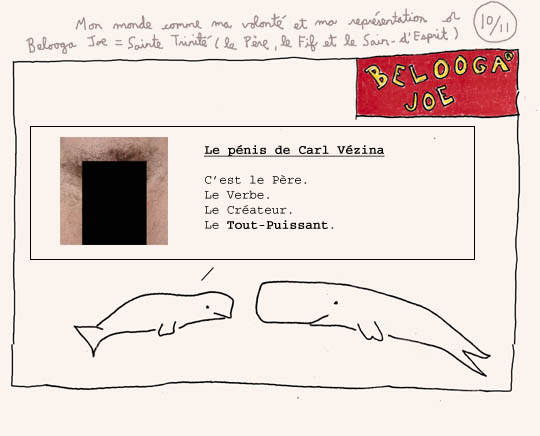 Mon monde comme ma volonté et ma représentation or
10/11
Belooga Joe = Sainte Trinité (le Père, le Fif et le Sain-d'Esprit)
BELOOGA
JOE
Le pénis de Carl Vézina
C'est le Père.
Le Verbe.
Le Créateur.
Le Tout-Puissant.